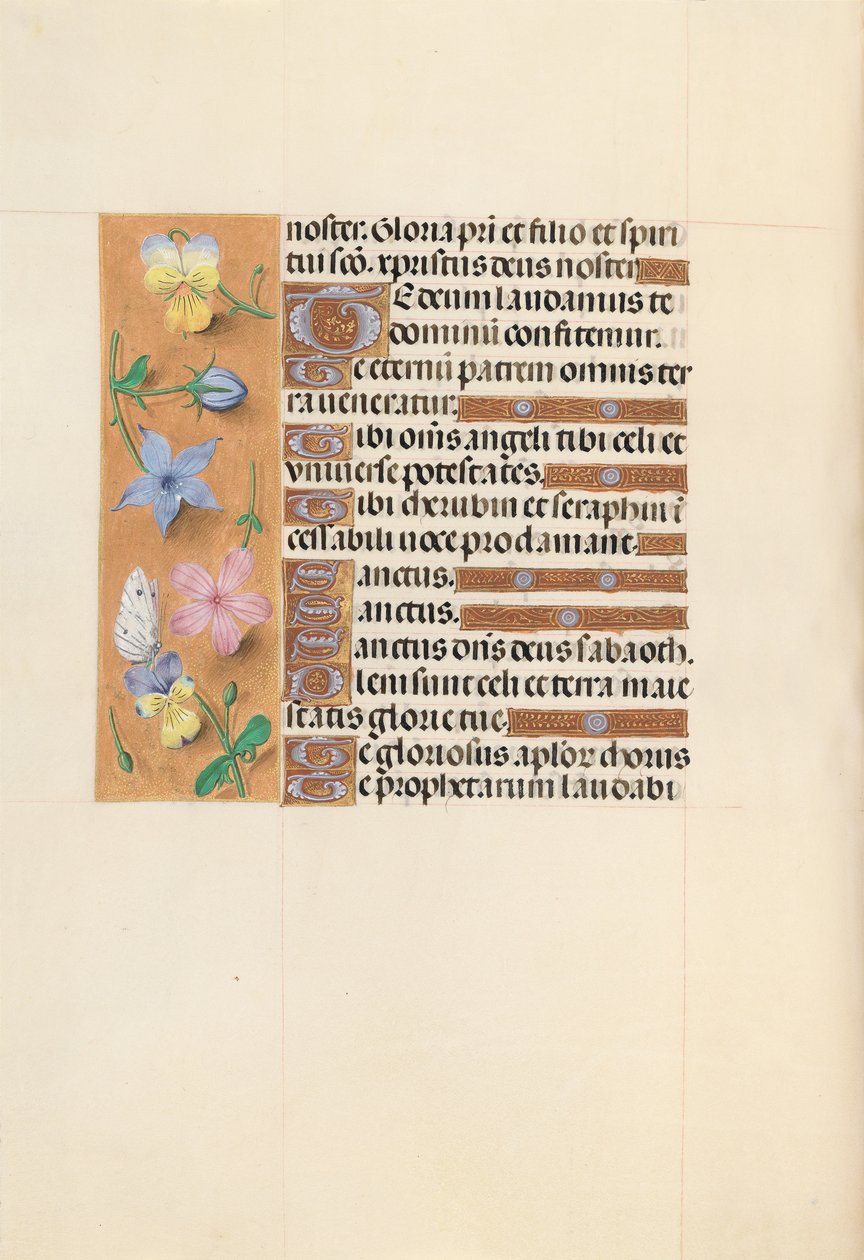 noster. Gloria pr̄i et filio et spiri
tui scō. xpristus deus noster
TE deum laudamus te
dominū confitemur.
Te eternū patrem omnis ter
ra ueneratur.
Tibi om̄s angeli tibi celi et
vniuerse potestates.
Tibi cherubin et seraphin ī
cessabili uoce proclamant.
Sanctus.
Sanctus.
Sanctus dn̄s deus sabaoth.
Pleni sunt celi et terra maie
statis glorie tue.
Te gloriosus aplōꝝ chorus
Te prophetarum laudabi